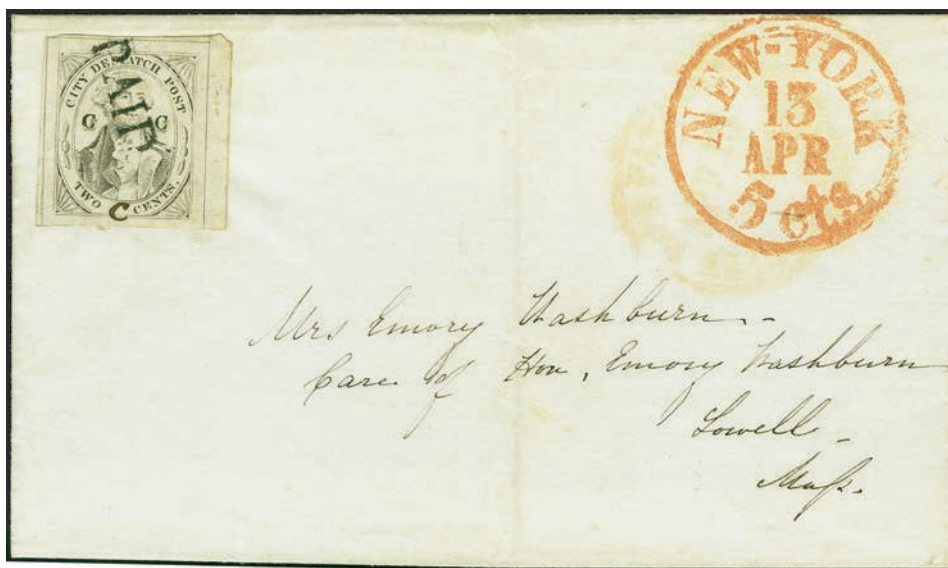 CITY DESPATCH POST
PAID
C C
TWO CENTS.
C
NEW-YORK
13
APR
5 cts.
Mrs Emory Washburn.-
Care of Hon, Emory Washburn
Lowell -
Mass.